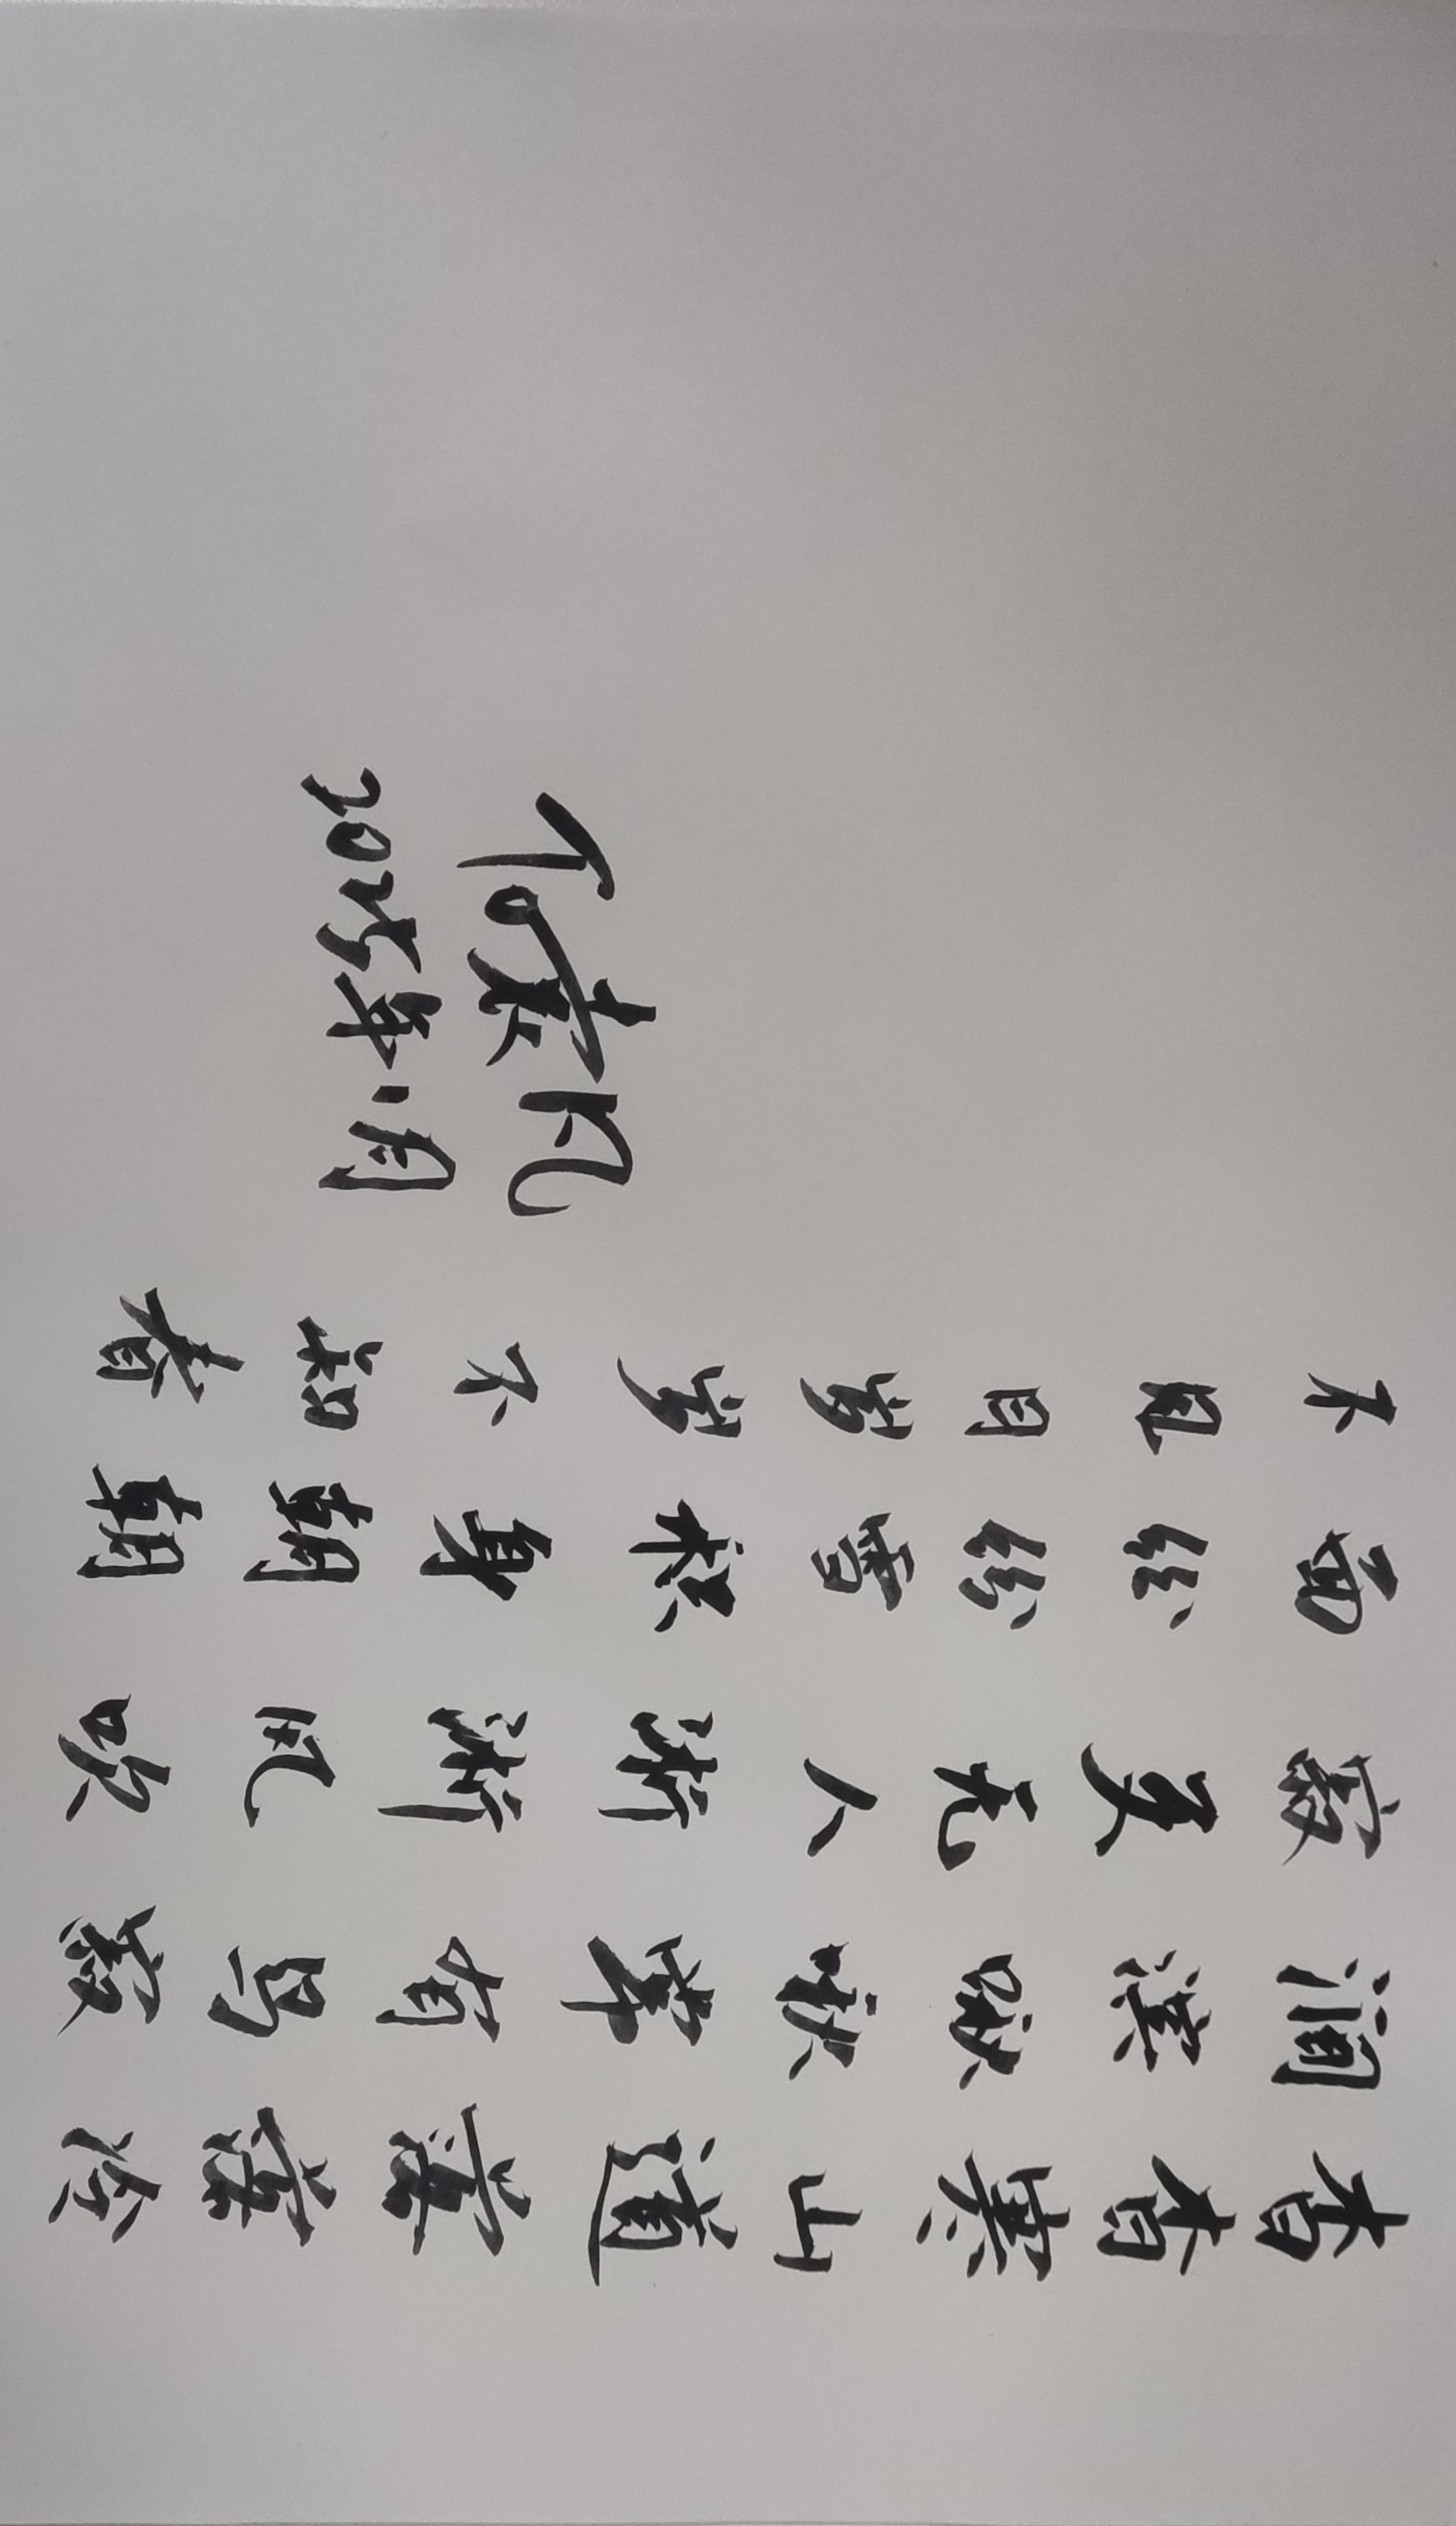 杳杳寒山道落落冷
涧滨啾啾常有鸟寂
寂更无人淅淅风吹
面纷纷雪积身朝朝
不见日岁岁不知春
To袁凡
2025年1月